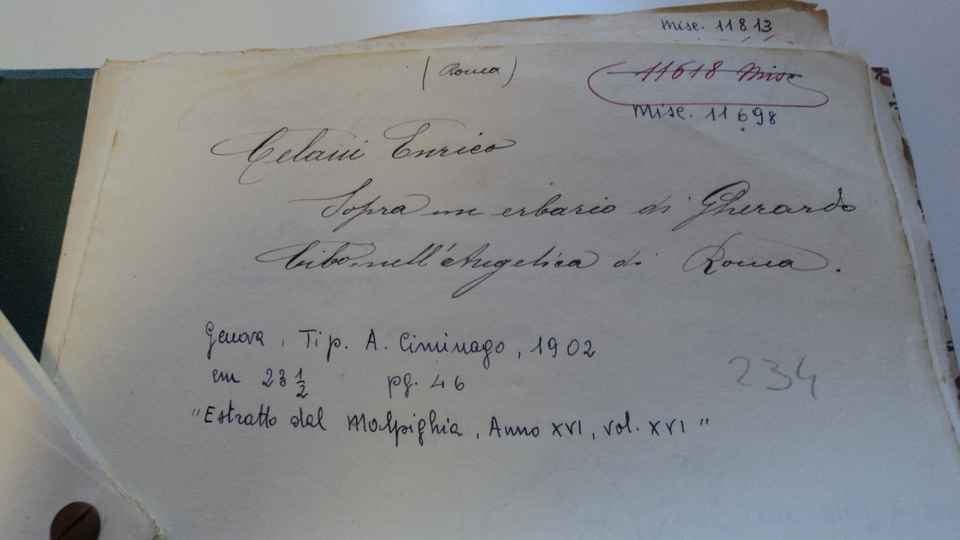 Misc. 11813
(Roma)
11618 Misc
Misc. 11698
Celani Enrico
Sopra un erbario di Gherardo
Cibo nell'Angelica di Roma.
Genova, Tip. A. Ciminago, 1902
cm 23 1/2 pg. 46
234
"Estratto dal Malpighia, Anno XVI, vol. XVI"